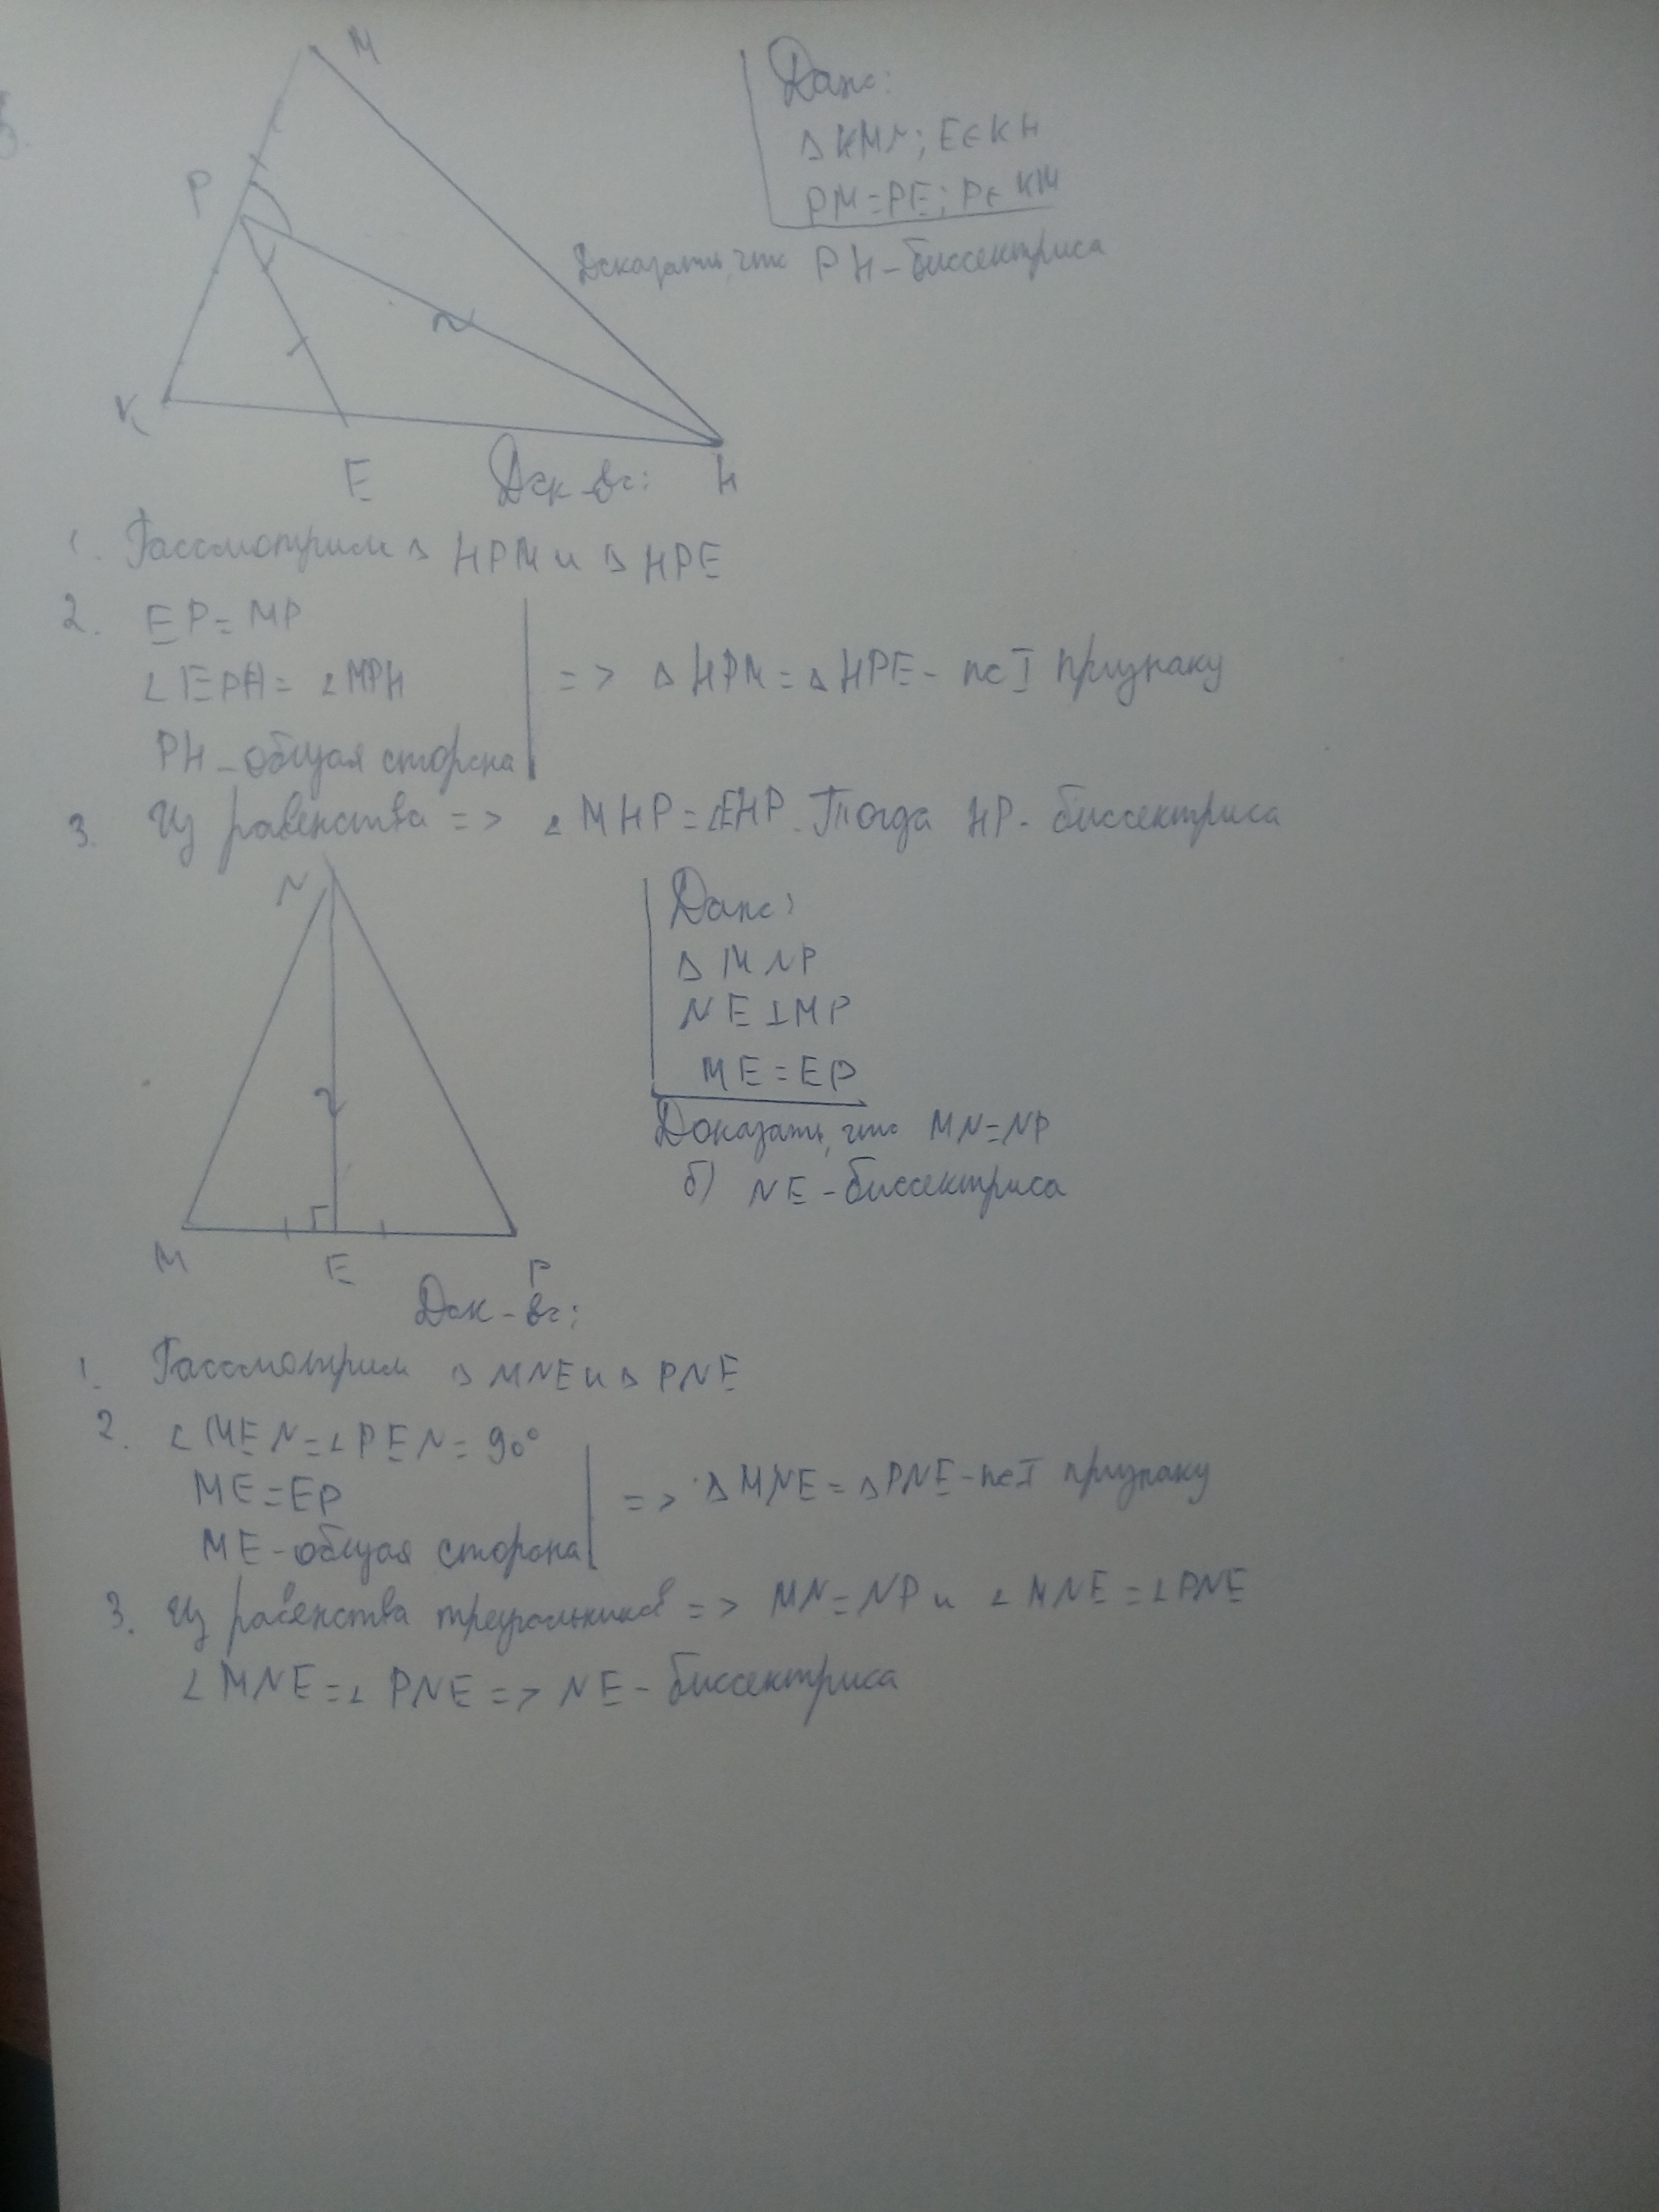 M
P
K
E
H
Дано:
Δ KMN; E∈KH
PM=PE; P∈ KM
Доказать, что PH - биссектриса
Док-во:
1. Рассмотрим Δ HPM и Δ HPE
2. EP = MP
∠EPH = ∠MPH
PH - общая сторона
=> Δ HPM = Δ HPE - по I признаку
3. Из равенства => ∠MHP = ∠EHP. Тогда HP - биссектриса
N
M
E
P
Дано:
Δ MNP
NE⊥MP
ME=EP
Доказать, что MN=NP
б) NE - биссектриса
Док-во:
1. Рассмотрим Δ MNE и Δ PNE
2. ∠MEN=∠PEN=90°
ME=EP
ME - общая сторона
=> Δ MNE = Δ PNE - по I признаку
3. Из равенства треугольников => MN=NP и ∠MNE=∠PNE
∠MNE=∠PNE => NE - биссектриса